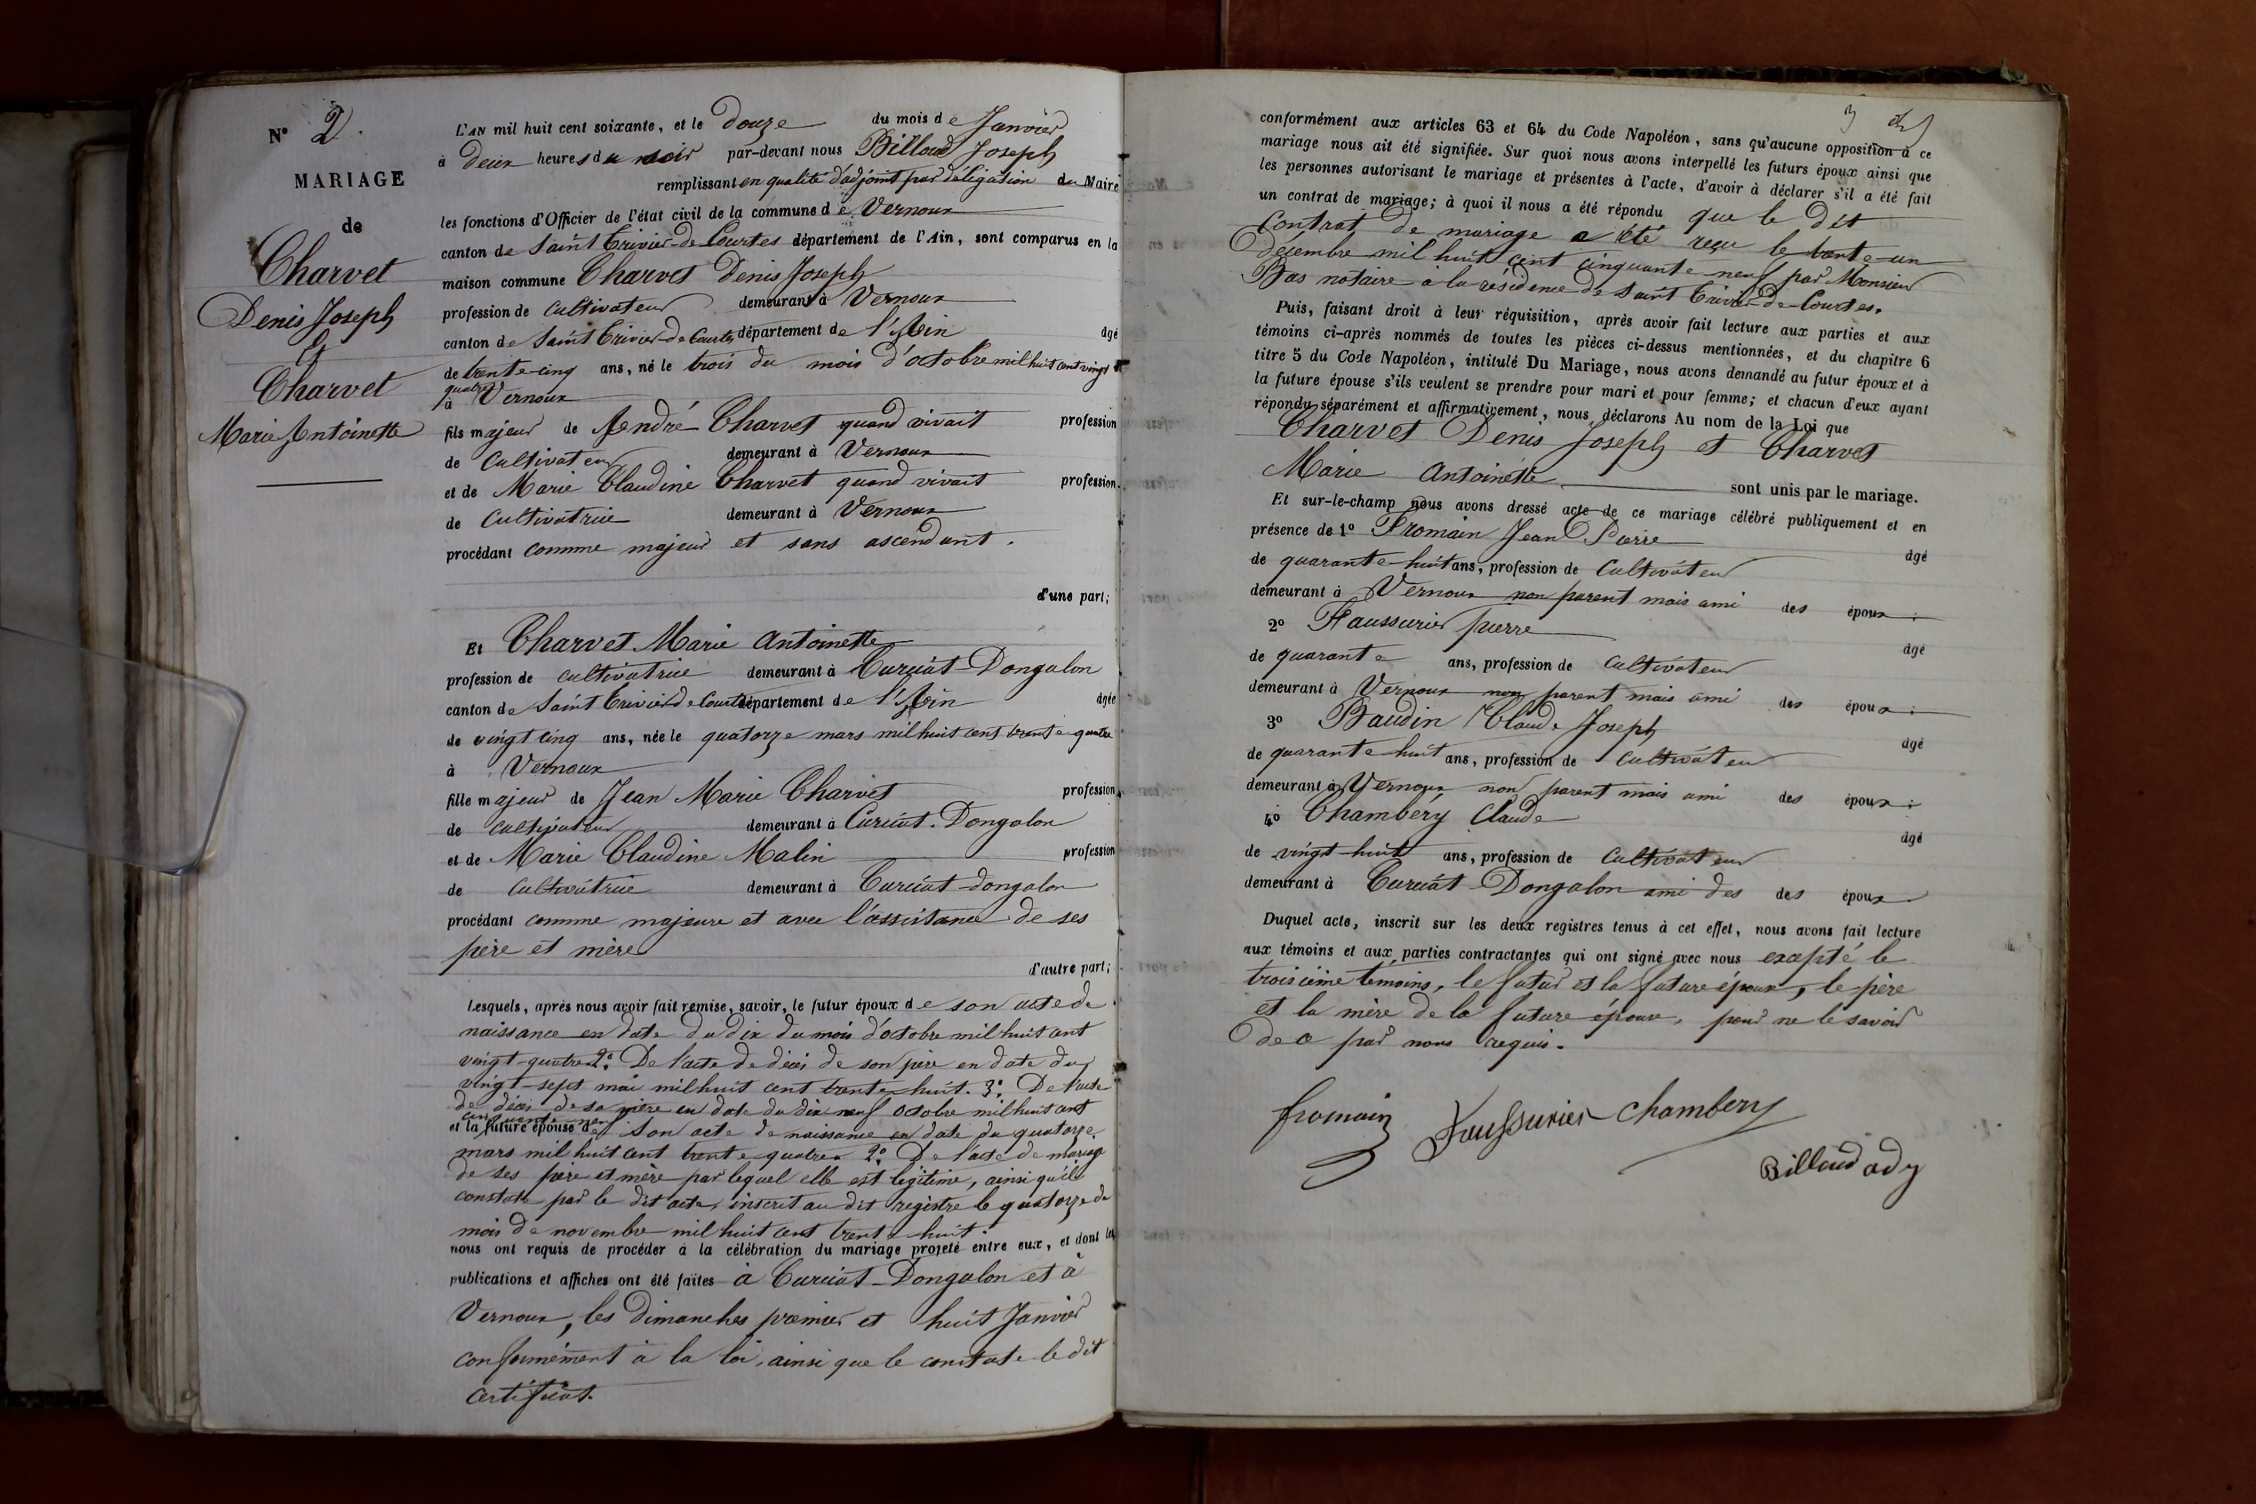 N° 2.
MARIAGE
de
Charvet
Denis Joseph
Et
Charvet
Marie Antoinette
L'AN mil huit cent soixante, et le douze du mois de Janvier
à deux heures du soir par-devant nous Billoud Joseph
remplissant en qualité d'adjoint par déligation du Maire
les fonctions d'Officier de l'état civil de la commune de Vernoux
canton de Saint Trivier-de-Courtes département de l'Ain, sont comparus en la
maison commune Charvet Denis Joseph
profession de cultivateur demeurant à Vernoux
canton de Saint Trivier-de-Courtes département de l'Ain âgé
de trente-cinq ans, né le trois du mois d'octobre mil huit cent vingt
quatre
à Vernoux
fils majeur de André Charvet quand vivait profession
de Cultivateur demeurant à Vernoux
et de Marie Claudine Charvet quand vivait profession
de Cultivatrice demeurant à Vernoux
procédant comme majeur et sans ascendant.
d'une part;
Et Charvet Marie Antoinette
profession de cultivatrice demeurant à Curciat-Dongalon
canton de Saint Trivier de Courtes département de l'Ain âgée
de vingt cinq ans, née le quatorze mars mil huit cent trente quatre
à Vernoux
fille majeur de Jean Marie Charvet profession
de cultivateur demeurant à Curciat-Dongalon
et de Marie Claudine Malin profession
de cultivatrice demeurant à Curciat-dongalon
procédant comme majeure et avec l'assistance de ses
père et mère
d'autre part;
Lesquels, après nous avoir fait remise, savoir, le futur époux de son acte de
naissance en date du dix du mois d'octobre mil huit cent
vingt-quatre 2° De l'acte de décès de son père en date du
vingt-sept mai mil huit cent trente huit. 3° De l'acte
de décès de sa mère en date du dix neuf octobre mil huit cent
cinquante neuf
et la future épouse de son acte de naissance en date du quatorze
mars mil huit cent trente quatre 2° De l'acte de mariage
de ses père et mère par lequel elle est légitime, ainsi qu'il
constate par le dit acte, inscrit au dit registre le quatorze de
mois de novembre mil huit cent trente huit.
nous ont requis de procéder à la célébration du mariage projeté entre eux, et dont les
publications et affiches ont été faites à Curciat-Dongalon et à
Vernoux, les Dimanches premier et huit Janvier
conformément à la loi, ainsi que le constate le dit
certificat.
3
conformément aux articles 63 et 64 du Code Napoléon, sans qu'aucune opposition à ce
mariage nous ait été signifiée. Sur quoi nous avons interpellé les futurs époux ainsi que
les personnes autorisant le mariage et présentes à l'acte, d'avoir à déclarer s'il a été fait
un contrat de mariage; à quoi il nous a été répondu que le dit
Contrat de mariage a été reçu le trente-un
Décembre mil huit cent cinquante-neuf par Monsieur
Bas notaire à la résidence de Saint Trivier-de-Courtes.
Puis, faisant droit à leur réquisition, après avoir fait lecture aux parties et aux
témoins ci-après nommés de toutes les pièces ci-dessus mentionnées, et du chapitre 6
titre 5 du Code Napoléon, intitulé Du Mariage, nous avons demandé au futur époux et à
la future épouse s'ils veulent se prendre pour mari et pour femme; et chacun d'eux ayant
répondu séparément et affirmativement, nous déclarons Au nom de la Loi que
Charvet Denis Joseph et Charvet
Marie Antoinette sont unis par le mariage.
Et sur-le-champ nous avons dressé acte de ce mariage célébré publiquement et en
présence de 1° Fromain Jean Pierre âgé
de quarante-huit ans, profession de Cultivateur
demeurant à Vernoux non parent mais ami des époux;
2° Faussurier Pierre âgé
de quarante ans, profession de Cultivateur
demeurant à Vernoux non parent mais ami des époux;
3° Baudin Claude Joseph âgé
de quarante-huit ans, profession de Cultivateur
demeurant à Vernoux non parent mais ami des époux;
4° Chambéry Claude âgé
de vingt-huit ans, profession de Cultivateur
demeurant à Curciat-Dongalon ami des des époux
Duquel acte, inscrit sur les deux registres tenus à cet effet, nous avons fait lecture
aux témoins et aux parties contractantes qui ont signé avec nous excepté le
troisième témoins, le futur et la future époux, le père
et la mère de la future épouse, pour ne le savoir
de ce par nous requis.
fromain Faussurier Chambery
Billoud adj